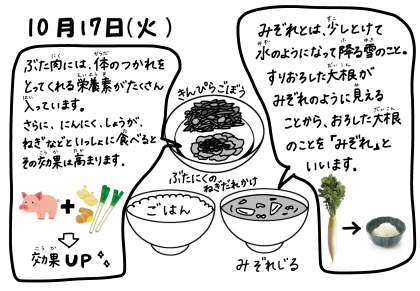 10月17日(火)
ぶた肉には、体のつかれを
とってくれる栄養素がたくさん
入っています。
さらに、にんにく、しょうが、
ねぎなどといっしょに食べると
その効果は高まります。
効果UP
きんぴらごぼう
ぶたにくの
ねぎだれかけ
ごはん
みぞれじる
みぞれとは、少しとけて
水のようになって降る雪のこと。
すりおろした大根が
みぞれのように見える
ことから、おろした大根
のことを「みぞれ」と
いいます。